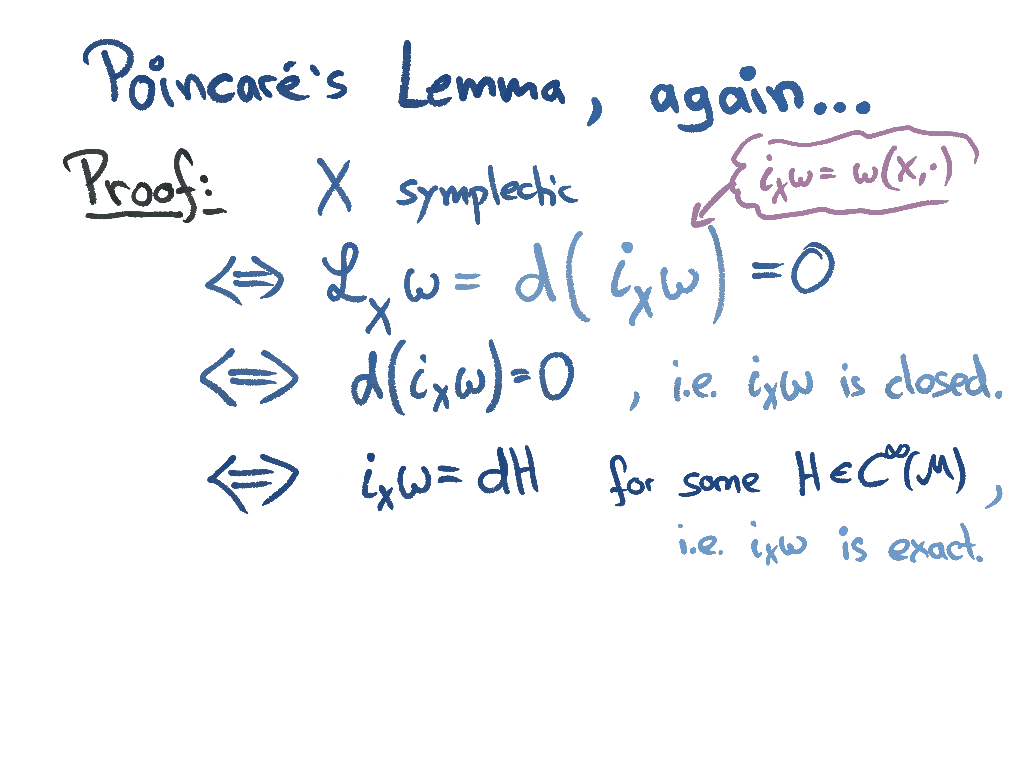 Poincaré's Lemma, again...
i_X ω = ω(X,·)
Proof: X symplectic
⇔ ℒ_X ω = d(i_X ω) = 0
⇔ d(i_X ω) = 0 , i.e. i_X ω is closed.
⇔ i_X ω = dH for some H ∈ C^∞(M) ,
i.e. i_X ω is exact.